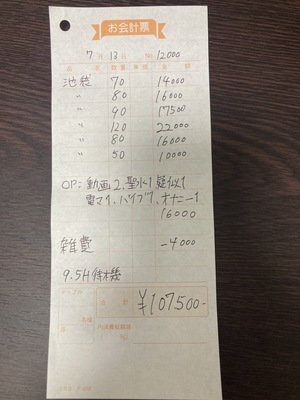 お会計票
7月 13日 No 12000
品 名 数量 単価 金 額
池袋 70 14000
〃 80 16000
〃 90 17500
〃 120 22000
〃 80 16000
〃 50 10000
OP: 動画2、聖水1 疑似1
電マ1、バイブ1、オナニー1
16000
雑費 -4000
9.5H 待木幾
合 計 ¥107500-